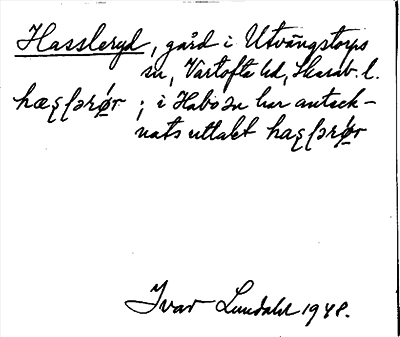 Hassleryd, gård i Utvängstorps
sn, Vartofta hd, Skarab. l.
hæʂʃərør ; i Habo sn har anteck-
nats uttalet haʂʃərør
Ivar Lundahl 1948.